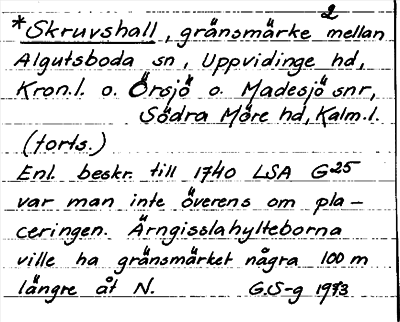 *Skruvshall, gränsmärke 2 mellan
Algutsboda sn, Uppvidinge hd,
Kron.l. o. Örsjö o. Madesjö snr,
Södra Möre hd, Kalm.l.
(forts.)
Enl. beskr. till 1740 LSA G25
var man inte överens om pla-
ceringen. Ärngisslahylteborna
ville ha gränsmärket några 100 m
längre åt N. G.S-g 1973